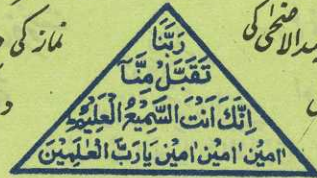 یدالاضحیٰ کی
نماز کی
رَبَّنَا
تَقَبَّلْ مِنَّا
اِنَّكَ اَنْتَ السَّمِیْعُ الْعَلِیْمُ
اٰمِیْن اٰمِیْن اٰمِیْن یَارَبَّ الْعٰلَمِیْنَ